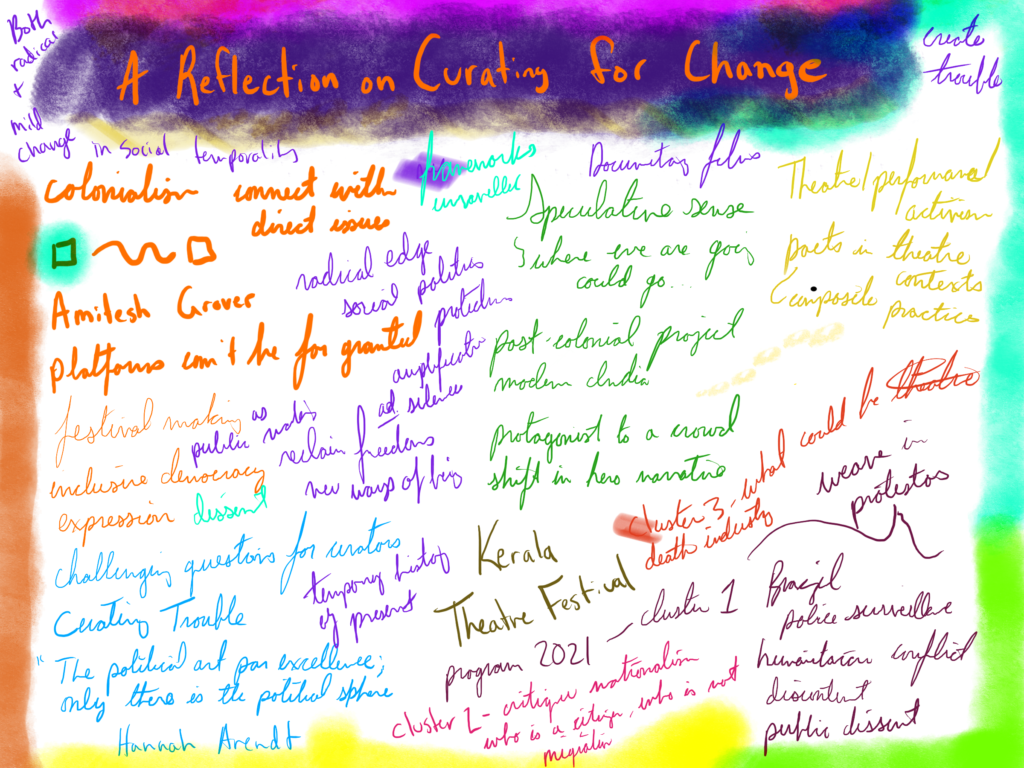 A Reflection on Curating for Change
Both
radical
+
mild
change in social temporality
create
trouble
colonialism connect with
direct issues
frameworks
Documentary films
Speculative sense
where we are going
could go...
Theatre/performance
activism
poets in theatre
contexts
Composite
practice
Amitesh Grover
platforms can't be for granted
radical edge
social politics
amplification
silence
festival making
as
public
inclusive democracy
expression dissent
reclaim freedoms
new ways of being
post-colonial project
modern India
protagonist to a crowd
shift in hero narrative
challenging questions for curators
Curating Trouble
temporary history
of present
"The political art par excellence;
only there is the political sphere
Hannah Arendt
Kerala
Theatre Festival
program 2021 – cluster 1
cluster 2 - critique nationalism
who is a citizen, who is not
migration
cluster 3 - what could be theatre
death industry
weave in
protestors
Brazil
police surveillance
humanitarian conflict
discontent
public dissent